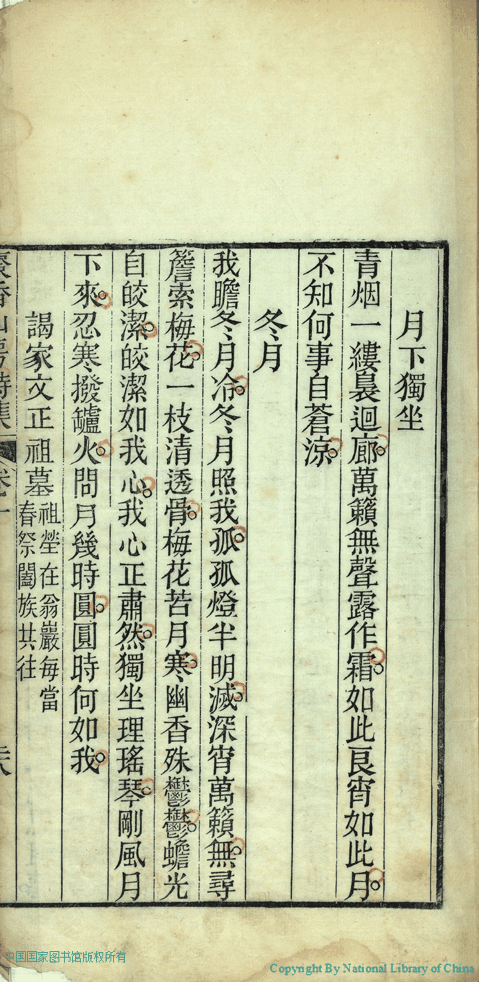 月下獨坐
青烟一縷裊迴廊萬籟無聲露作霜如此良宵如此月
不知何事自蒼涼
冬月
我瞻冬月冷冬月照我孤孤燈半明滅深宵萬籟無尋
簷索梅花一枝清透骨梅花苦月寒幽香殊鬱鬱蟾光
自皎潔皎潔如我心我心正肅然獨坐理瑤琴剛風月
下來忍寒撥罏火問月幾時圓圓時何如我
謁家文正祖墓祖塋在翁巖每當
春祭闔族共往
香山房詩集
卷一
中国国家图书馆版权所有
Copyright By National Library of China